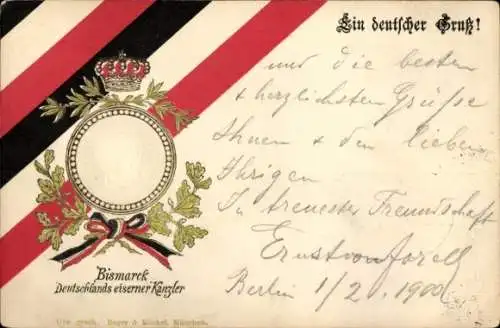 Ein deutscher Gruß!
und die besten
+ herzlichsten Grüße
Ihnen + den lieben
Ihrigen
In treuester Freundschaft
Ernst von
Berlin 1/2. 1900
Bismarck
Deutschlands eiserner Kanzler
Ges. gesch. München.